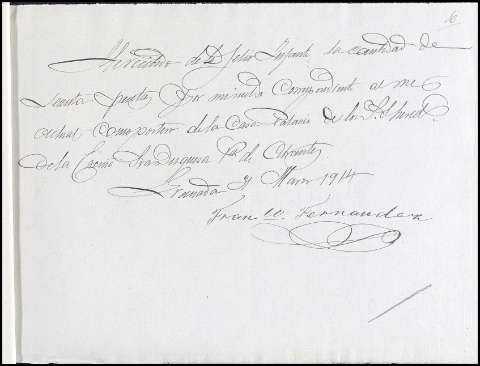 16
He recibido de D. Felix Infante la cantidad de
Sesenta pesetas por mi sueldo Correspondiente al mes
actual como portero de la Casa Palacio de los
de la Excma Sra Duquesa
Granada 31 Marzo 1914
Franco Fernandez